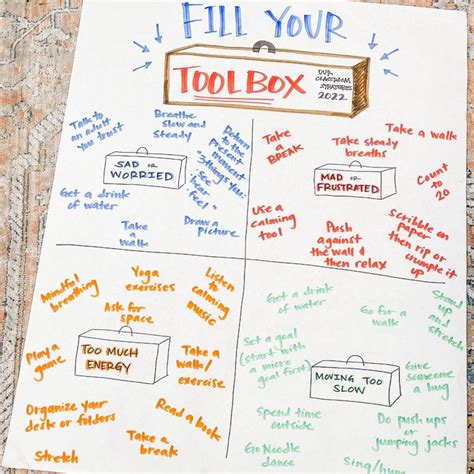 FILL YOUR
TOOLBOX
OUR
CLASSROOM
STRATEGIES
2022
Talk to
an adult
you trust
Breathe
slow and
steady
Return to
the present
moment
"3 things you:
see
hear
feel"
SAD OR
WORRIED
Get a drink
of water
Take
a walk
Draw a
picture
Take
a
BREAK
Take steady
breaths
Take a walk
MAD OR
FRUSTRATED
Count
to
20
Use a
calming
tool
Push
against
the wall &
then relax
Scribble on
paper
then rip or
crumple it
up
Mindful
breathing
Yoga
exercises
Listen
to
calming
music
Ask for
space
Play a
game
TOO MUCH
ENERGY
Take a
walk/
exercise
Organize your
desk or folders
Read a book
Stretch
Take a
break
Get a drink
of water
Go for a
walk
Stand
up
and
stretch
Set a goal
(start with
a micro
goal first)
MOVING TOO
SLOW
Give
someone
a hug
Spend time
outside
Do push ups
or
jumping jacks
Go Noodle
dance
Sing/hum